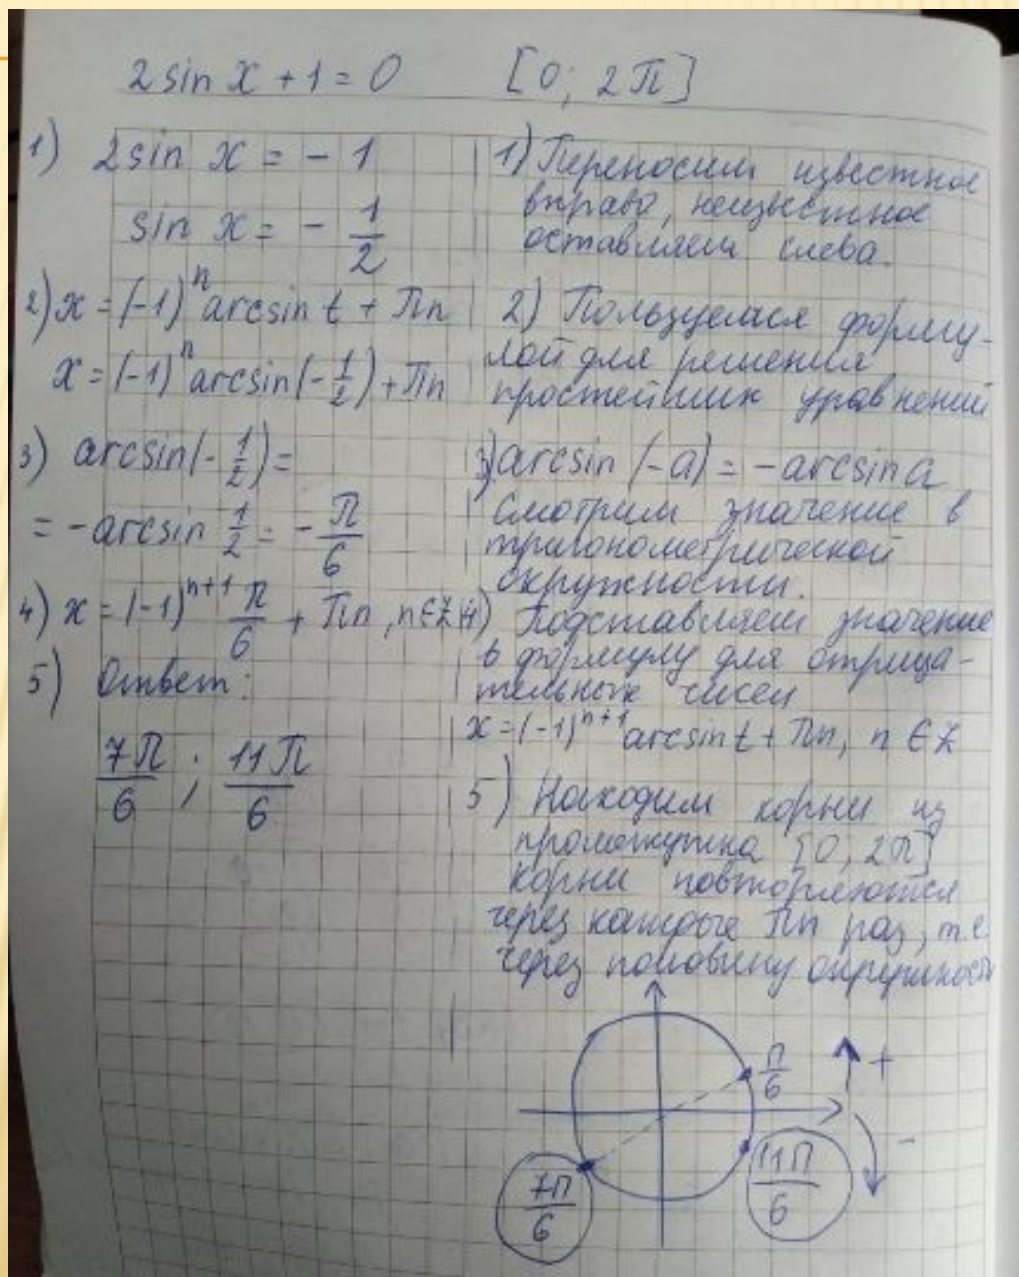 2 sin x + 1 = 0 [0; 2π]
1) 2 sin x = - 1
sin x = - 1/2
2) x = (-1)^n arcsin t + πn
x = (-1)^n arcsin(- 1/2) + πn
3) arcsin(- 1/2) =
= - arcsin 1/2 = - π/6
4) x = (-1)^{n+1} π/6 + πn, n∈Z
5) Ответ:
7π/6 ; 11π/6
1) Переносим известное
вправо, неизвестное
оставляем слева.
2) Пользуемся форму-
лой для решения
простейших уравнений
3) arcsin (-a) = - arcsin a
Смотрим значение в
тригонометрической
окружности.
4) Подставляем значение
в формулу для отрица-
тельных чисел
x = (-1)^{n+1} arcsin t + πn, n ∈ Z
5) Находим корни из
промежутка [0; 2π]
корни повторяются
через каждые πn раз, т.е.
через половину окружности
π/6
+
-
7π/6
11π/6